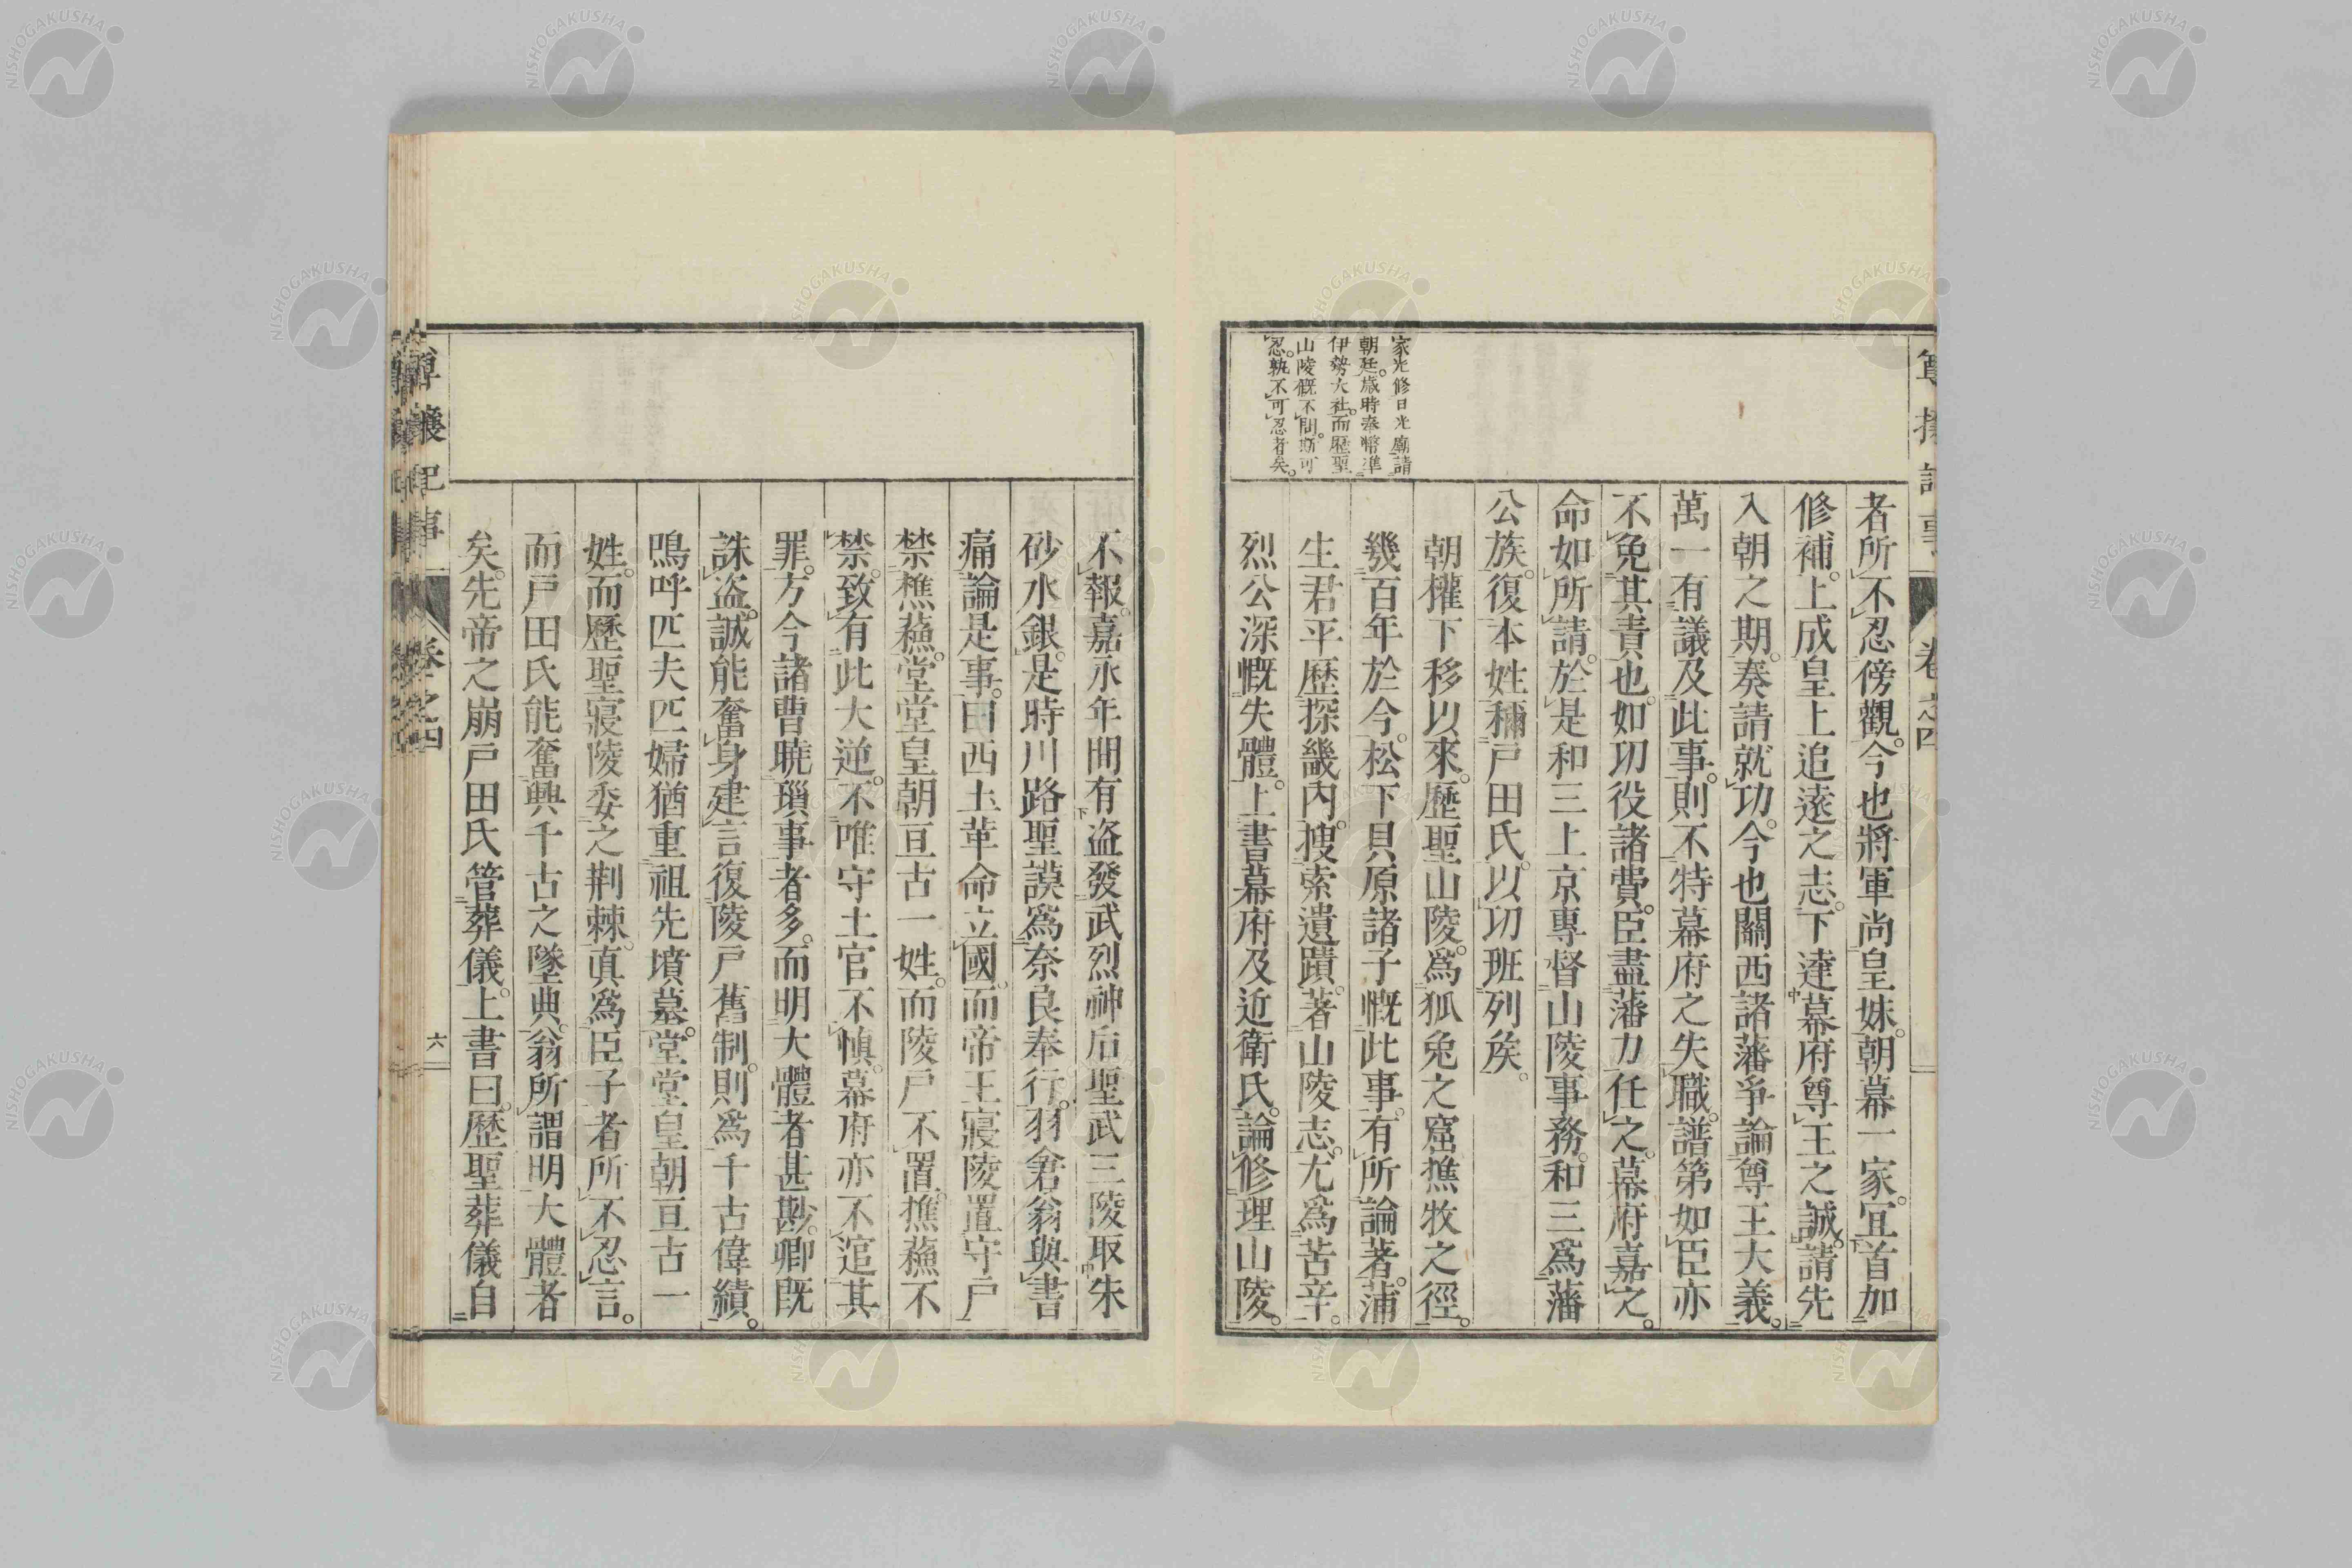 者所不忍傍觀。今也將軍尚皇妹。朝幕一家。宜首加
修補。上成皇上追遠之志。下達幕府尊王之誠。請先
入朝之期。奏請就功。今也關西諸藩爭論尊王大義。
萬一有議及此事。則不特幕府之失職。譜第如臣亦
不免其責也。如功役諸費。臣盡藩力任之。幕府嘉之。
命如所請。於是和三上京專督山陵事務。和三爲藩
公族。復本姓稱戸田氏。以功班列矦。
朝權下移以來。歷聖山陵。爲狐兔之窟樵牧之徑。
幾百年於今。松下貝原諸子慨此事。有所論著。蒲
生君平歷探畿內。搜索遺蹟。著山陵志。尤爲苦辛。
烈公深慨失體。上書幕府及近衛氏。論修理山陵。
家光修日光廟。請
朝廷。歲時奉幣準
伊勢大社。而歷聖
山陵慨不問。斯可
忍。孰不可忍者矣。
尊攘記事
卷之四
不報。嘉永年間有盜發武烈神后聖武三陵取朱
砂水銀。是時川路聖謨爲奈良奉行。羽倉翁與書
痛論是事。曰西土革命立國。而帝王寢陵置守戸
禁樵蘓。堂堂皇朝亘古一姓。而陵戸不置。樵蘓不
禁。致有此大逆。不唯守土官不愼。幕府亦不逭其
罪。方今諸曹曉瑣事者多。而明大體者甚尠。卿既
誅盜。誠能奮身建言復陵戸舊制。則爲千古偉績。
嗚呼匹夫匹婦猶重祖先墳墓。堂堂皇朝亘古一
姓。而歷聖寢陵委之荆棘。眞爲臣子者所不忍言。
而戸田氏能奮興千古之墜典。翁所謂明大體者
矣。先帝之崩戸田氏管葬儀。上書曰。歷聖葬儀自
尊攘紀事
卷之四
六
NISHOGAKUSHA